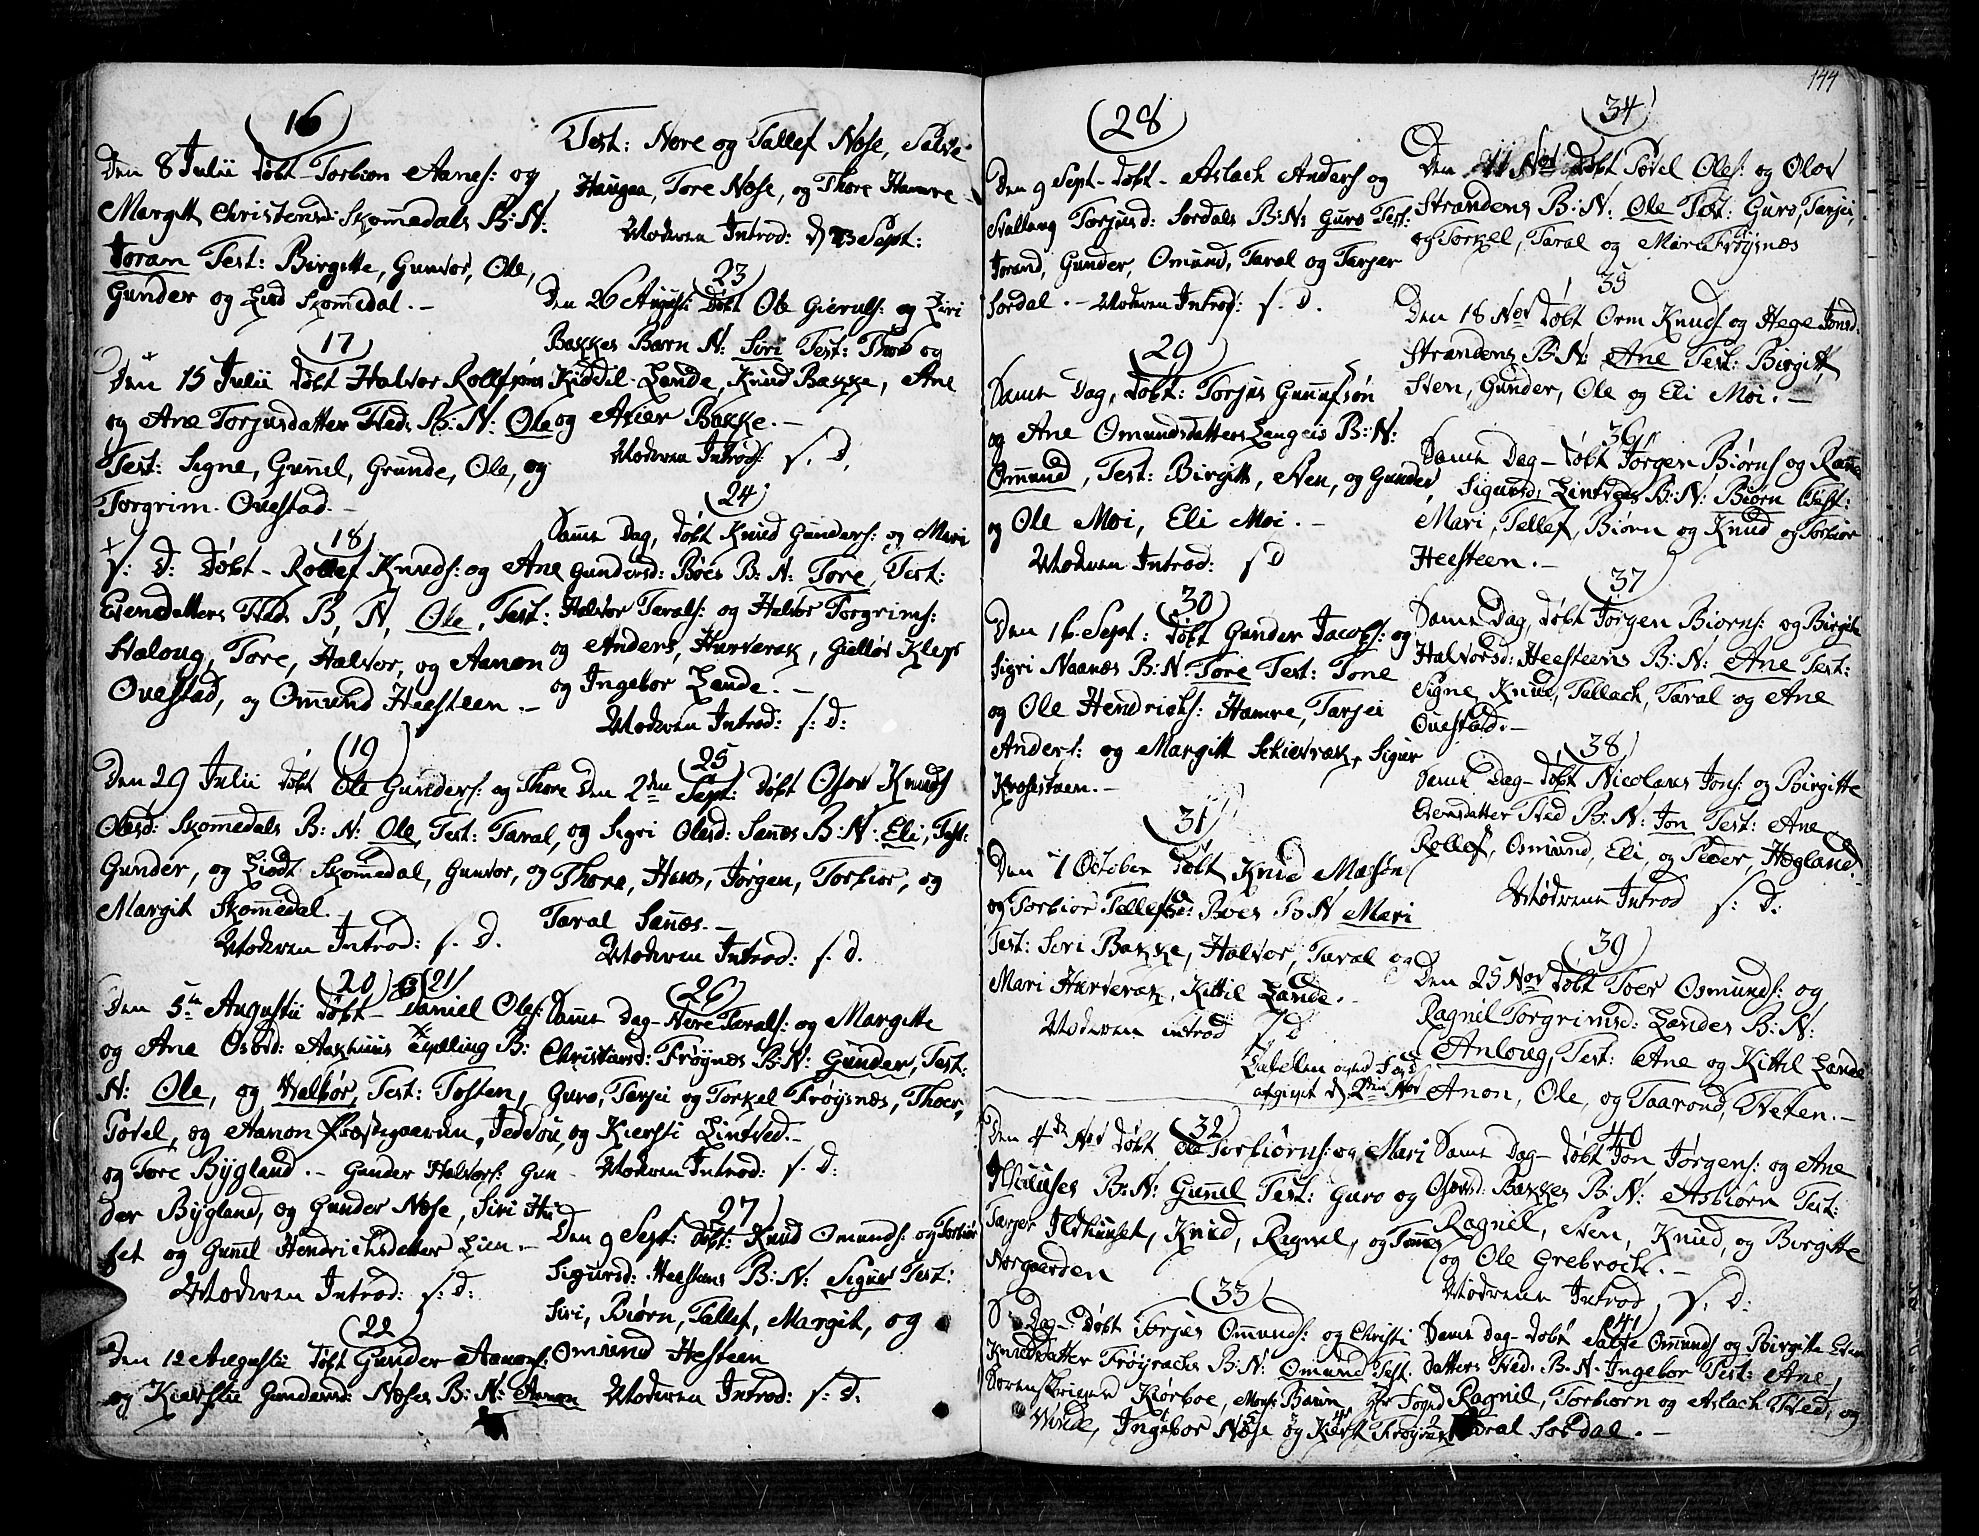 16
Den 8 Julii døbt Torbiøn Aanes: og
Margitt Christensd: Skomedals B: N:
Joram Test: Birgitte, Gunvor, Ole,
Gunder og Liød Skomedal. -
17
Den 15 Julii døbt Halvor Rollefsøns
og Ane Torjusdatter Fleds B: N: Ole
Test: Signe, Gunil, Grunde, Ole, og
Torgrim Ouestad. -
18
S: D: Døbt - Rollef Knuds: og Ane
Evendatters Fleds B, N, Ole, Test:
Haloug, Tore, Halvor, og Aanon
Ouestad, og Omund Heesteen. -
19
Den 29 Julii døbt Ole Gunders: og Thore
Olesd: Skomedals B: N: Ole, Test: Taral,
Gunder, og Liødt Skomedal, Gunvor, og
Margit Skomedal. -
Moderen Introd: s. D.
20 21
Den 5te Augustii døbt - Daniel Oles:
og Ane Osbd: Aakhuus Tvilling B:
N: Ole, og Halvor, Test: Tosten,
Tovel, og Aanon Præstegaarden, Jeddou,
og Tore Bygland. - Gunder Halvors: Gun
der Bygland, og Gunder Nese, Siri Hu
set og Gunil Hendrichsdatter Lien. -
Moderen Introd: s: D:
22
Den 12 Augustii døbt Gunder Aanons:
og Kierstie Gundersd: Neses B: N: Aanon
Test: Nere og Tallef Nese, Salve
Haugaa, Tore Nese, og Thore Hamre -
Moderen Introd: d 23 Sept:
23
Den 26 Augusti døbt Ole Gieruls: og Liri
Bakkes Barn N: Siri Test: Thore og
Kiddil Lande, Knud Bakke, Ane
og Asier Bakke. -
Moderen Introd: s. D.
24
Samme Dag, døbt Knud Gunders: og Mari
Gundersd: Boes B: N: Tore, Test:
Halvor Tarals: og Halvor Torgrims:
og Anders, Hurverak, Giellov Klep
og Ingebor Lande. -
Moderen Introd: s: D:
25
Den 2den Sept: døbt Osou Knuds
og Sigri Olesd: Sanes B: N: Eli, Test:
Thora, Hans, Jørgen, Torbior, og
Taral Sanes. -
Moderen Introd: s. D.
26
Samme Dag - Nere Tarals: og Margitte
Christensd: Frøynes B: N: Gunder, Test:
Guro, Tarjei og Torkel Frøysnes, Thoer,
og Kiersti Lintved. -
Moderen Introd: s. D:
27
Den 9 Sept: døbt: Knud Omunds: og Torbiør
Sigursd: Heestens B: N: Sigur Test:
Siri, Biørn, Tallef, Margit, og
Omund Hesteen
Moderen Introd: s: D:
144
28
Den 9 Sept - døbt - Aslach Anders og
Svallaug Torjusd: Sordals B: N: Guro Test:
Jorand, Gunder, Omund, Taral og Tarjer
Sordal. - Moderen Introd: s. D.
29
Samme Dag, døbt: Torjus Gunufsøn
og Ane Omundsdatters Langeis B: N:
Omund, Test: Birgitt, Sten, og Gunder,
og Ole Moi, Eli Moi. -
Moderen Introd: s D
30
Den 16 Sept: døbt Gunder Jacobs: og
Sigri Naanes B: N: Tore Test: Tone
og Ole Hendrichs: Hamre, Tarjei
Anders: og Margitt Schievrak, Sigur
Krosestoen. -
31
Den 7 October døbt Knud Masøn
og Torbior Tellefsd: Boes B: N Mari
Test: Siri Bakke, Halvor, Taral og
Mari Hurverak, Kittil Lande. -
Moderen introd s D
afgivet d. 2den Nov
32
Den 4de Nov døbt Ole Torbiørns: og Mari
Ilhuuses B: N: Gunil Test: Guro og
Tarjer Ildhuuset, Knud, Ragnil, og Tones
Norgaarden
33
S: Dag - døbt Torjus Omunds: og Christi
Knudsdatter Frøyraks B: N: Omund Test:
Sorenskriver Kiørboe, Mons: Baswin
Winde, Ingebor Nese og Kierst Frøyrak
34
Den 11 Nov døbt Tovel Oles: og Olov
Strandens B: N: Ole Test: Guro, Tarjei,
og Torkel, Taral og Mari Frøysnes
35
Den 18 Nov døbt Orm Knuds og Hege Jonsd:
Strandens B: N: Ane Test: Birgitt,
Sten, Gunder, Ole og Eli Moi. -
36
Samme Dag - døbt Jørgen Biørns og Rane
Sigursd: Lintveds B: N: Biørn Test:
Mari, Tellef, Biørn og Knud og Torbior
Heesteen. -
37
Samme Dag, døbt Jørgen Biørns: og Birgite
Halvorsd: Heesteens B: N: Ane Test:
Signe, Knud, Tallach, Taral og Ane
Ouestad. -
38
Samme Dag - døbt Nicolaus Jons: og Birgitte
Evensdatter Fled B: N: Jon Test: Ane
Rollef, Osmund, Eli, og Peder, Høgland.
Moderen Introd s: D:
39
Den 25 Nov døbt Toer Osmunds: og
Ragnil Torgrimsd: Landes B: N:
Anloug, Test: Ane og Kittil Lande
Anon, Ole, og Taarond, Fleten. -
40
Samme Dag - døbt Jon Jørgens: og Ane
Osovsd: Bakkes B: N: Asbiørn Test:
Ragnil, Sten, Knud, og Birgitte
og Ole Grebrock. -
Moderen Introd, s. D:
41
Samme Dag - døbt Salve Omunds og Birgitte Even
datters Fled: B: N: Ingebor Test: Ane,
Ragnil, Torbiorn og Aslach Fled, og
Taral Sordal. -